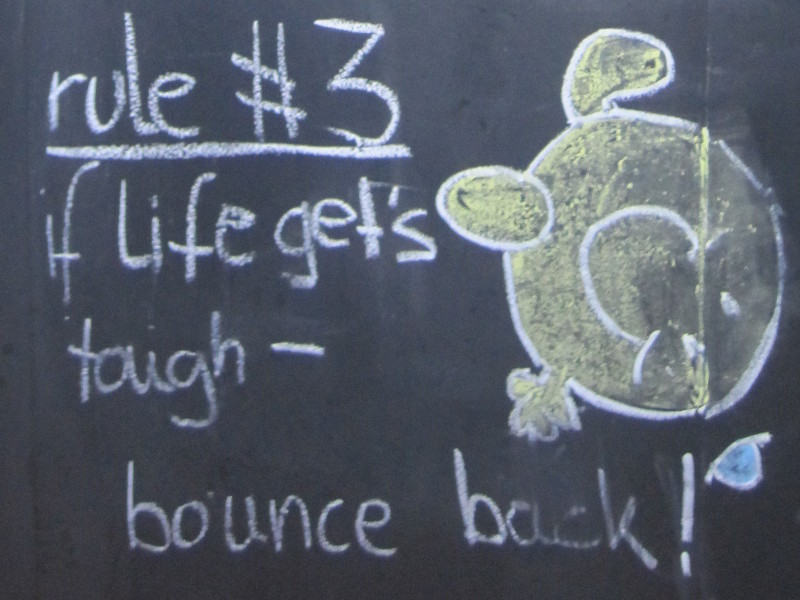 rule #3
if life get's
tough -
bounce back!